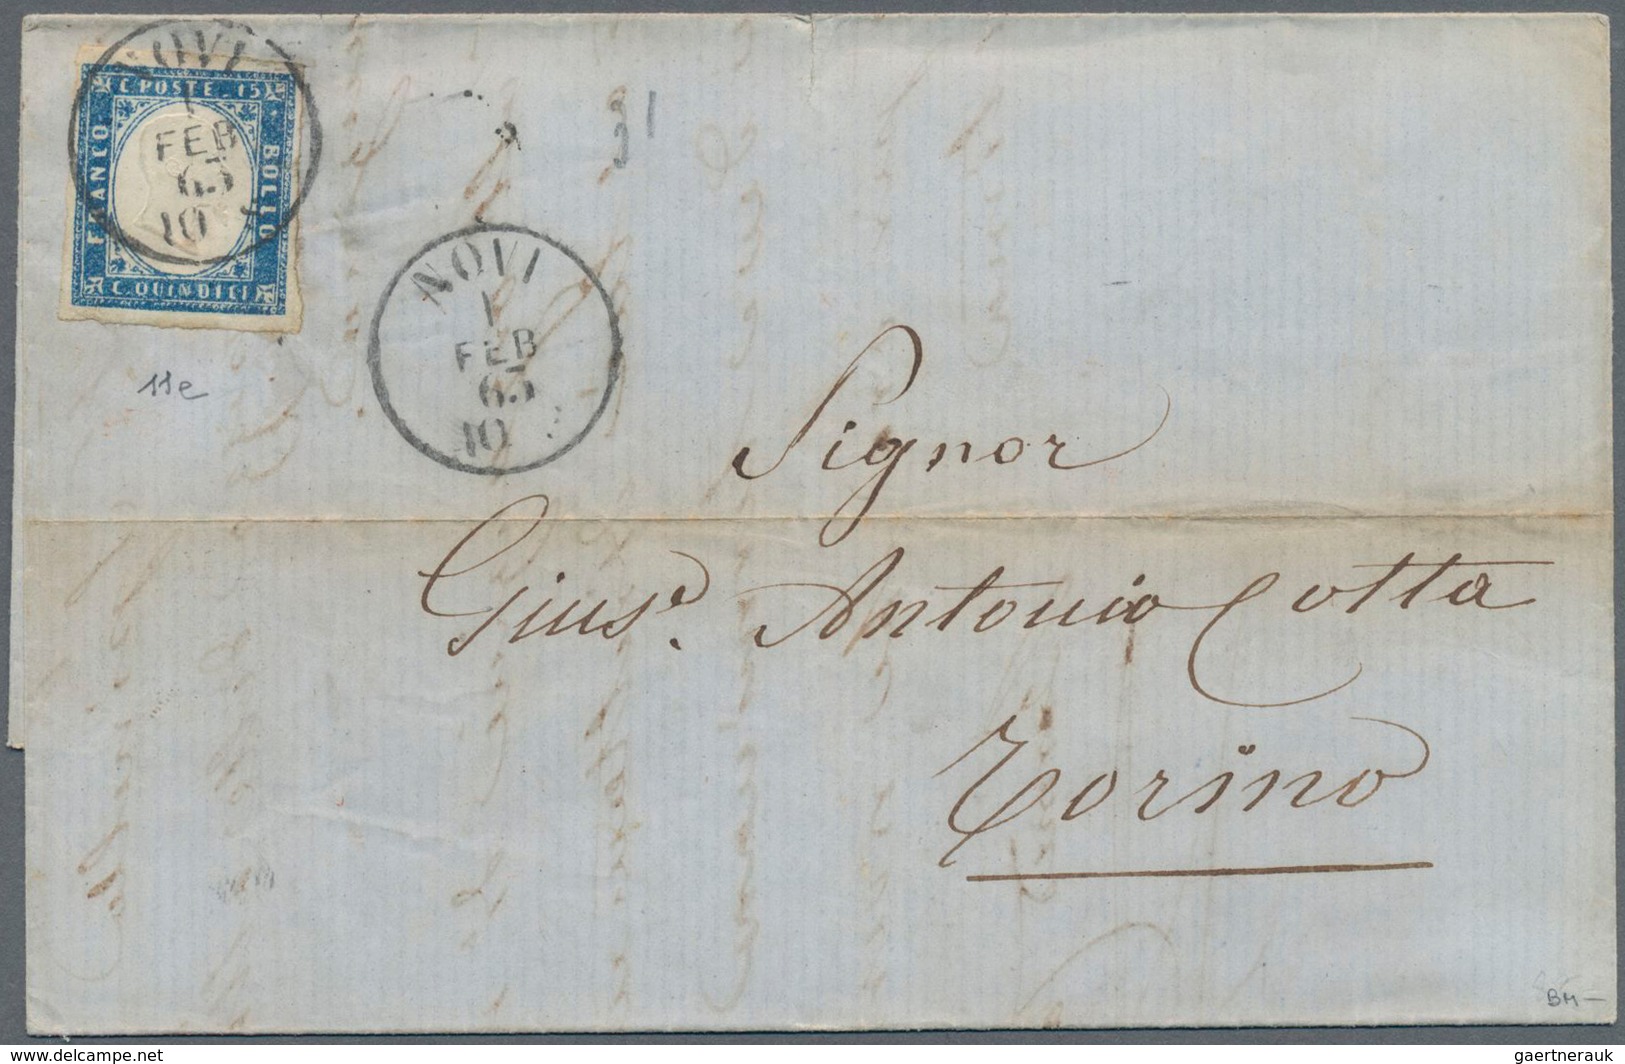 NOVI
1
FEB
63
10
C. POSTE. 15
FRANCO
BOLLO
C. QUINDICI
NOVI
1
FEB
63
10
11e
Signor
Gius.e Antonio Cotta
Torino
BM-
www.delcampe.net
gaertnerauk